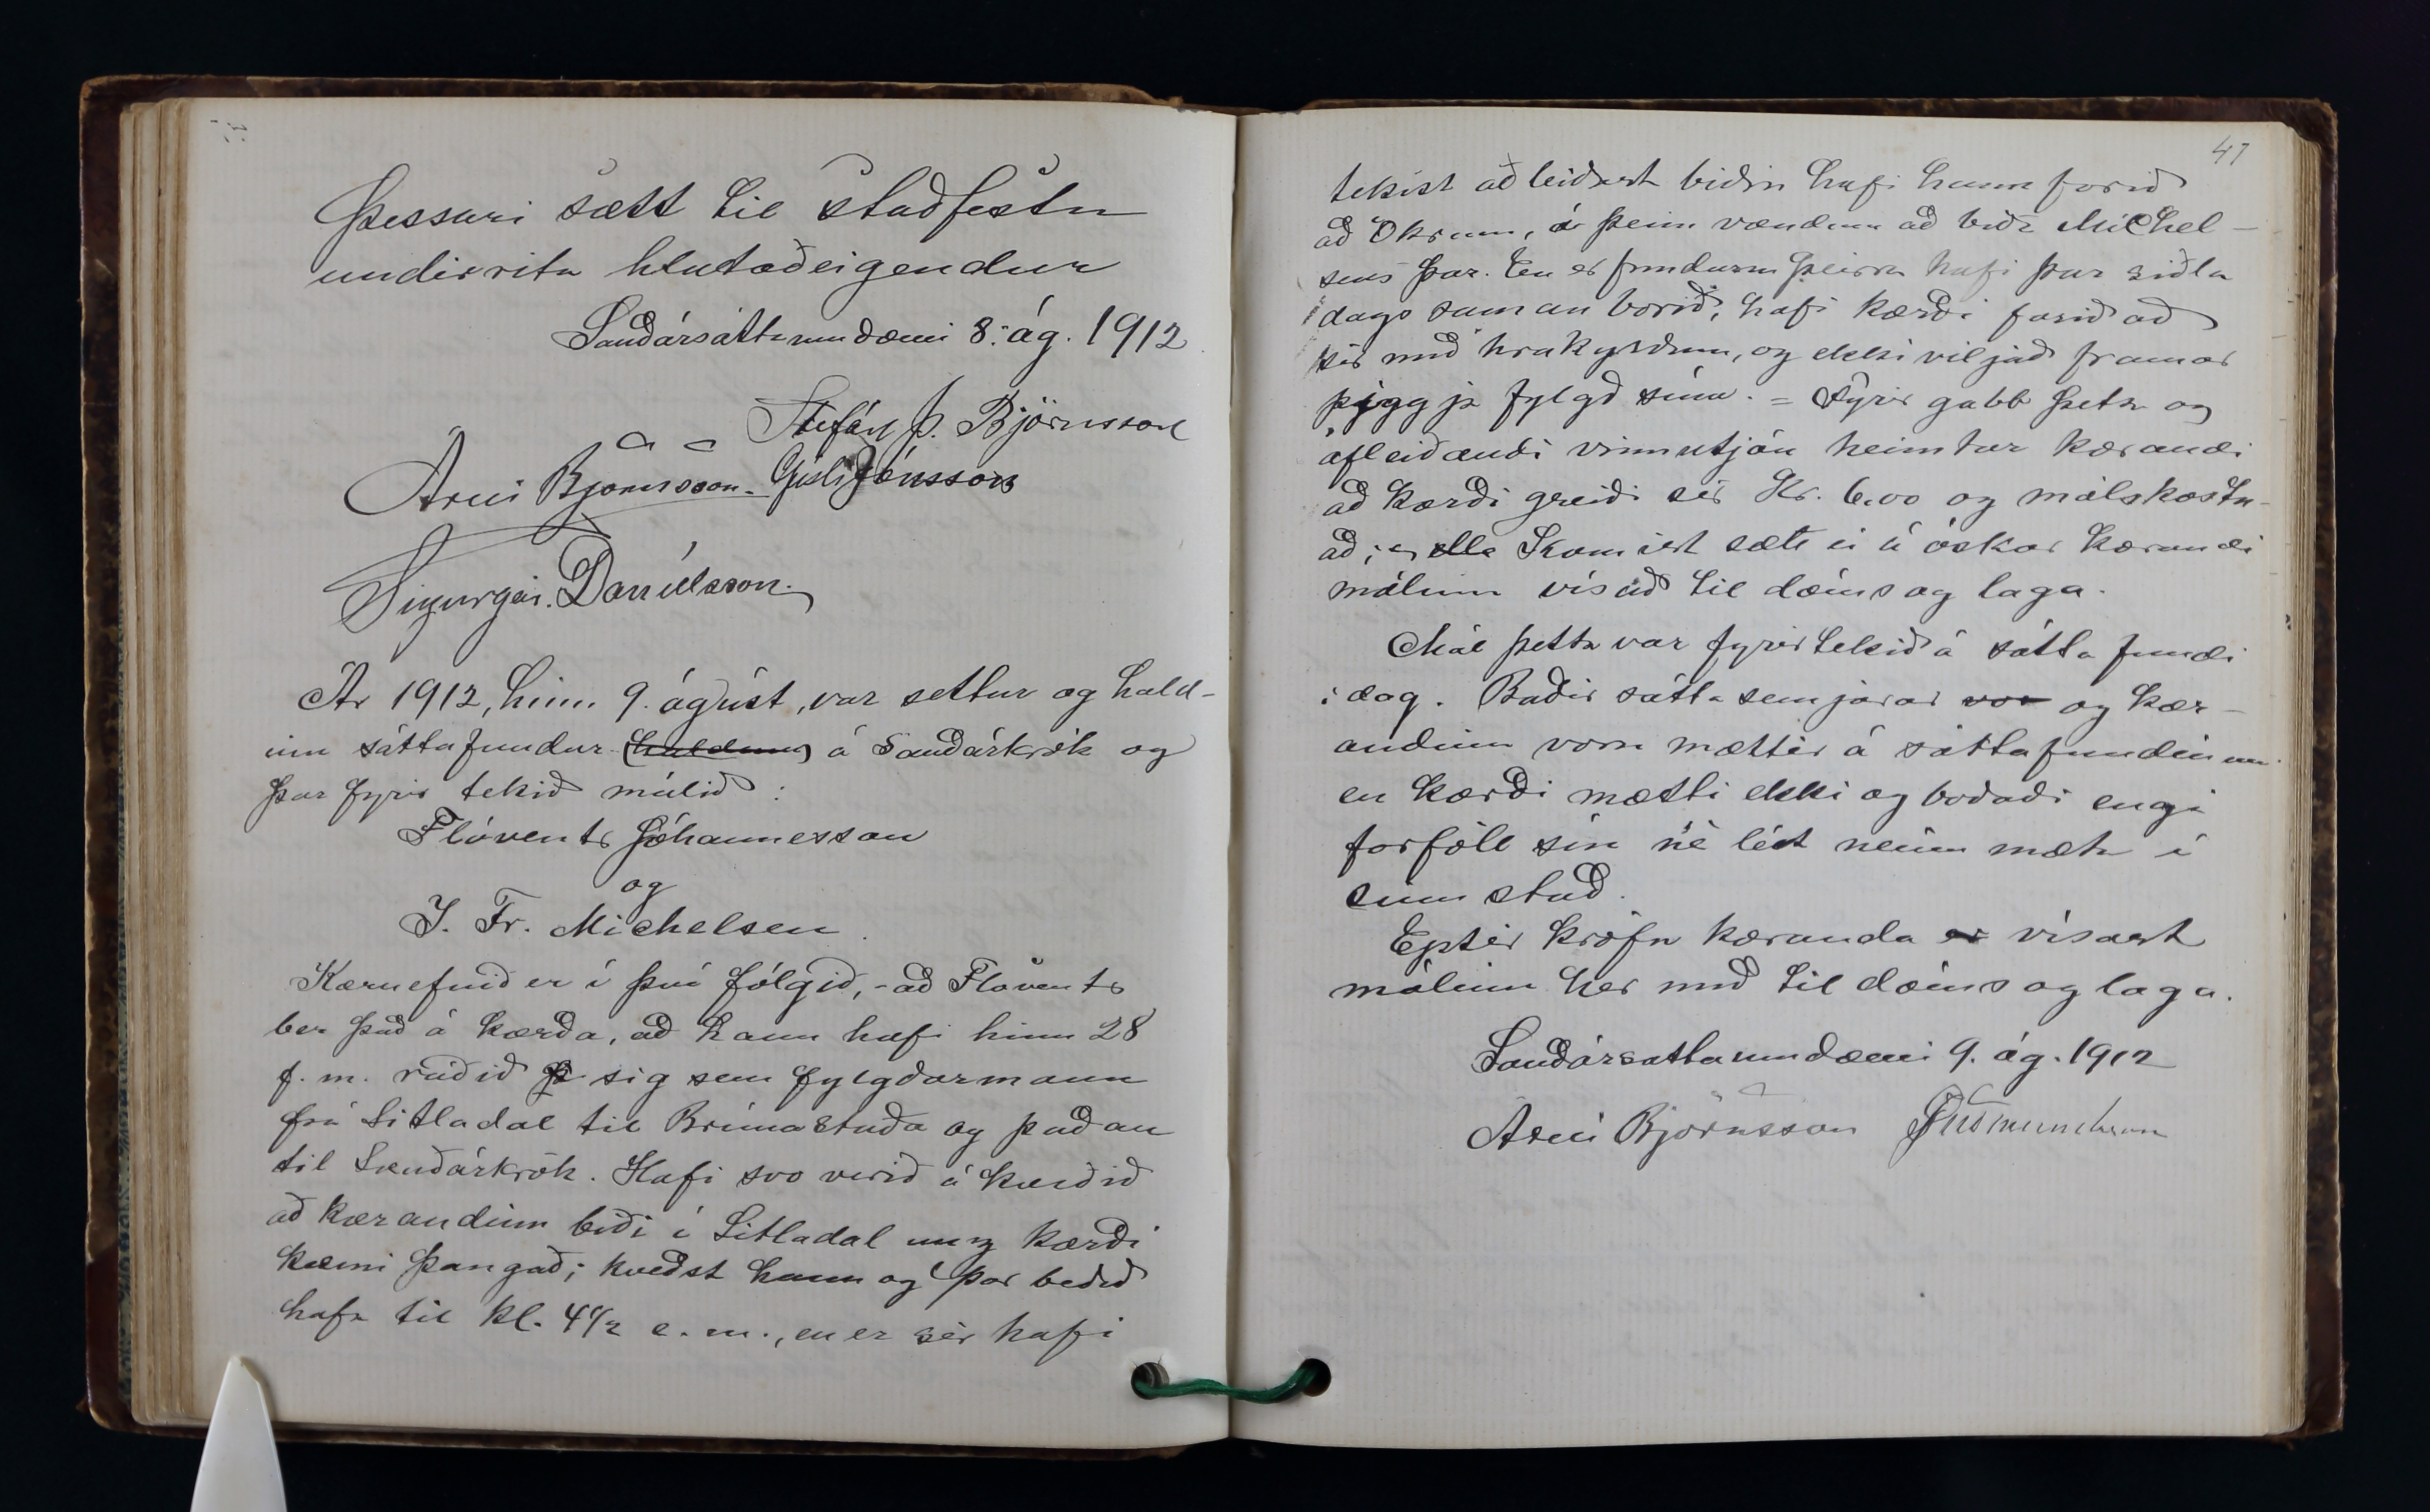 Þessari sætt til staðfestu
undirrita hlutaðeigendur
Sauðársáttaumdæmi 8. ág. 1912
Stefán Þ. Björnsson
Árni Björnsson. Gísli Jónsson
Sigurgeir Daníelsson.
Ár 1912, hinn 9. ágúst, var settur og hald-
inn sáttafundur (haldinn) á Sauðárkrók og
þar fyrir tekið málið:
Flóvents Jóhannesson
og
J. Fr. Michelsen.
Kæruefnið er í því fólgið, - að Flóvents
ber það á kærða, að hann hafi hinn 28
f. m. ráðið sig sem fylgdarmann
frá Litladal til Brúnastaða og þaðan
til Sauðárkrók. Hafi svo verið ákveðið
að kærandinn biði í Litladal unz kærði
kæmi þangað; kveðst hann og þar beðið
hafa til kl. 4 1/2 e. m., en er sér hafi
47
tekist að leiðast biðin hafi hann farið
að Ökrum, á þeim vændum að bíða Michel-
sens þar. En er fundum þeirra hafi þar síðla
dags saman borið, hafi kærði farið að
sér með hrakyrðum, og ekki viljað framar
þiggja fylgd sína. = Fyrir gabb þetta og
afleiðandi vinnutjón heimtar kærandi
að kærði greiði sér Kr. 6.00 og málskostn-
að; ella Komist sætt ei á óskar kærandi
málinu vísað til dóms og laga.
Mál þetta var fyrirtekið á sátta fundi
í dag. Báðir sáttasemjarar vor og kær-
andinn voru mættir á sáttafundinum
en kærði mætti ekki og boðaði engi
forföll sín né lét neinn mæta í
sinn stað.
Eptir kröfu kæranda er vísast
málinu hér með til dóms og laga.
Sauðársáttaumdæmi 9. ág. 1912
Árni Björnsson